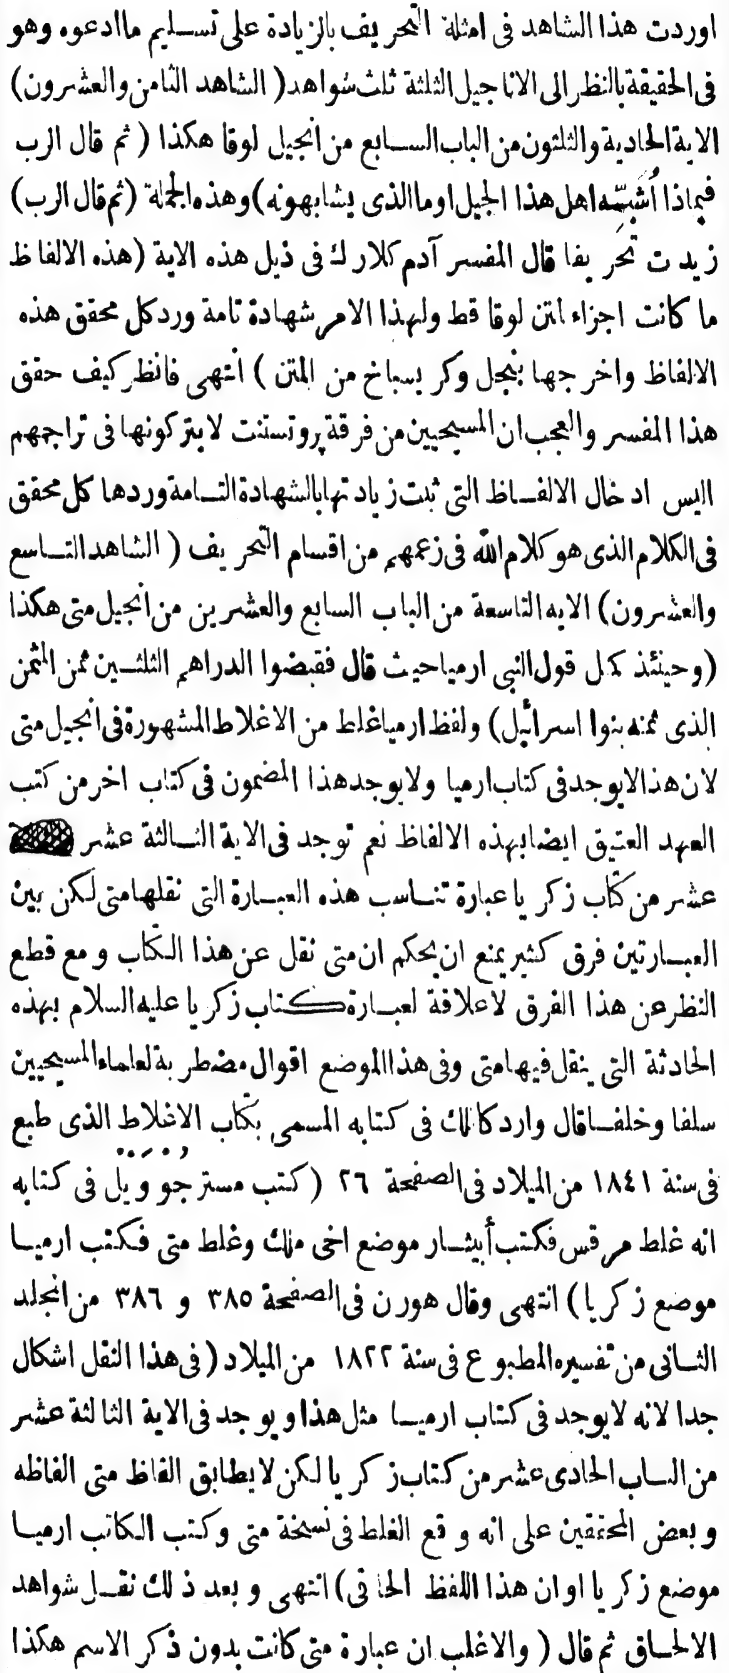 اوردت هذا الشاهد فى امثلة التحريف بالزيادة على تسليم ماادعوه وهو
فى الحقيقة بالنظر الى الاناجيل الثلثة ثلث شواهد ( الشاهد الثامن والعشرون)
الاية الحادية والثلثون من الباب السابع من انجيل لوقا هكذا ( ثم قال الرب
فبماذا أُشَبِّه اهل هذا الجيل او ما الذى يشابهونه) وهذه الجملة (ثم قال الرب)
زيدت تحريفا قال المفسر آدم كلارك فى ذيل هذه الاية (هذه الالفاظ
ما كانت اجزاء لمتن لوقا قط ولهذا الامر شهادة تامة ورد كل محقق هذه
الالفاظ واخرجها بنجل وكريسباخ من المتن ) انتهى فانظر كيف حقق
هذا المفسر والعجب ان المسيحيين من فرقة پروتستنت لا يتركونها فى تراجمهم
اليس ادخال الالفاظ التى ثبت زيادتها بالشهادة التامة وردها كل محقق
فى الكلام الذى هو كلام الله فى زعمهم من اقسام التحريف ( الشاهد التاسع
والعشرون) الايه التاسعة من الباب السابع والعشرين من انجيل متى هكذا
(وحينئذ كمل قول النبى ارميا حيث قال فقبضوا الدراهم الثلثين ثمن المثمن
الذى ثمنه بنوا اسرائيل) ولفظ ارميا غلط من الاغلاط المشهورة فى انجيل متى
لان هذا لايوجد فى كتاب ارميا ولا يوجد هذا المضمون فى كتاب اخر من كتب
العهد العتيق ايضا بهذه الالفاظ نعم توجد فى الاية الثالثة عشر
عشر من كتاب زكريا عبارة تناسب هذه العبارة التى نقلها متى لكن بين
العبارتين فرق كثير يمنع ان يحكم ان متى نقل عن هذا الكتاب ومع قطع
النظر عن هذا الفرق لاعلاقة لعبارة كتاب زكريا عليه السلام بهذه
الحادثة التى ينقل فيها متى وفى هذا الموضع اقوال مضطربة لعلماء المسيحيين
سلفا وخلفا قال وارد كاثلك فى كتابه المسمى بكتاب الاغلاط الذى طبع
فى سنة ١٨٤١ من الميلاد فى الصفحة ٢٦ (كتب مستر جوويل فى كتابه
انه غلط مرقس فكتب أبيثار موضع اخى ملك وغلط متى فكتب ارميا
موضع زكريا) انتهى وقال هورن فى الصفحة ٣٨٥ و ٣٨٦ من المجلد
الثانى من تفسيره المطبوع فى سنة ١٨٢٢ من الميلاد (فى هذا النقل اشكال
جدا لانه لايوجد فى كتاب ارميا مثل هذا ويوجد فى الاية الثالثة عشر
من الباب الحادى عشر من كتاب زكريا لكن لا يطابق الفاظ متى الفاظه
وبعض المحققين على انه وقع الغلط فى نسخة متى وكتب الكاتب ارميا
موضع زكريا او ان هذا اللفظ الحاقى) انتهى وبعد ذلك نقل شواهد
الالحاق ثم قال ( والاغلب ان عبارة متى كانت بدون ذكر الاسم هكذا